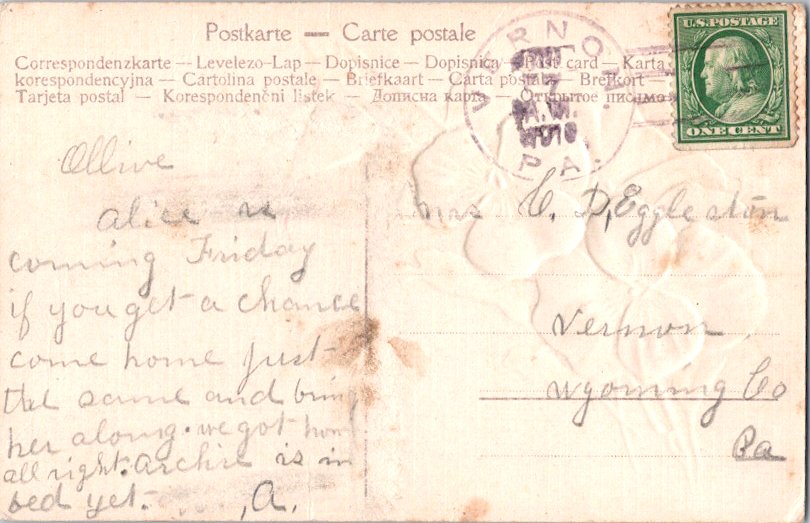 Postkarte — Carte postale
Correspondenzkarte — Levelezo-Lap — Dopisnice — Dopisnica — Post card — Karta
korespondencyjna — Cartolina postale — Briefkaart — Carta postala — Brefkort
Tarjeta postal — Korespondenční lístek — Дописна карта — Открытое письмо
VERNON
7
A.M.
1910
PA.
U.S. POSTAGE
ONE CENT
Ollive
Alice is
coming Friday
if you get a chance
come home just
the same and bring
her along. we got home
all right. Archie is in
bed yet.
A.
Mrs C. D. Eggleston
Vernon
Wyoming Co
Pa